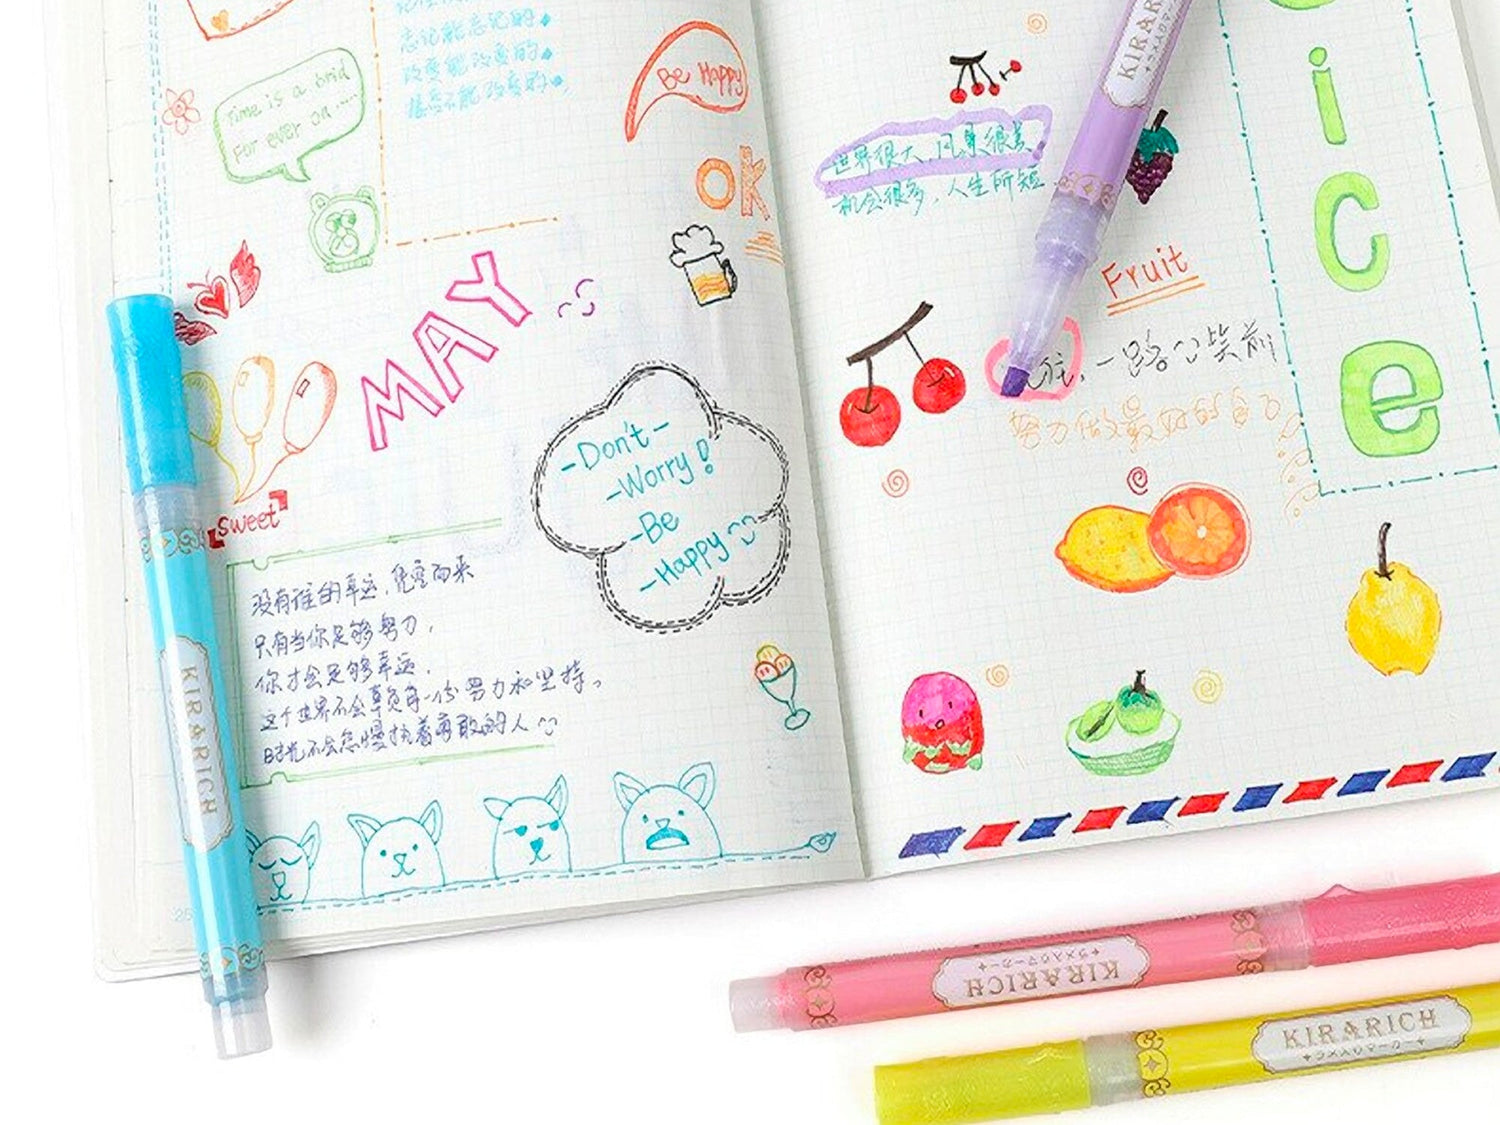 忘记能忘记的
改变能改变的
接受不能改变的
Time is a brid
For ever on ......
Be Happy
OK
MAY
Sweet
-Don't-
-Worry!
-Be
-Happy
没有谁的幸运，凭空而来
只有当你足够努力，
你才会足够幸运。
这个世界不会辜负每一份努力和坚持。
时光不会怠慢执着勇敢的人
25
KIRARICH
KIRARICH
世界很大，风景很美
机会很多，人生所短
Fruit
往，一路心笑前
努力做最好的自己
ice
KIRARICH
ラメ入りマーカー
KIRARICH
ラメ入りマーカー